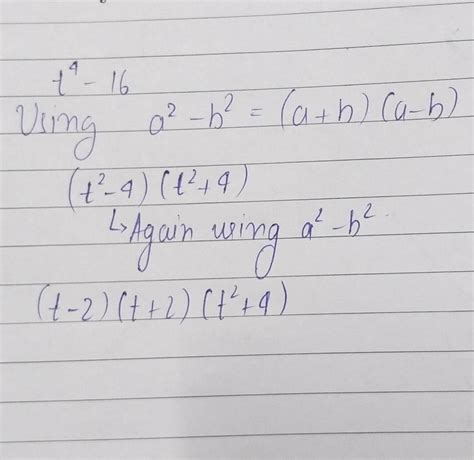 t⁴ - 16
Using a² - b² = (a+b) (a-b)
(t²-4) (t²+4)
↳ Again using a² - b².
(t-2) (t+2) (t²+4)